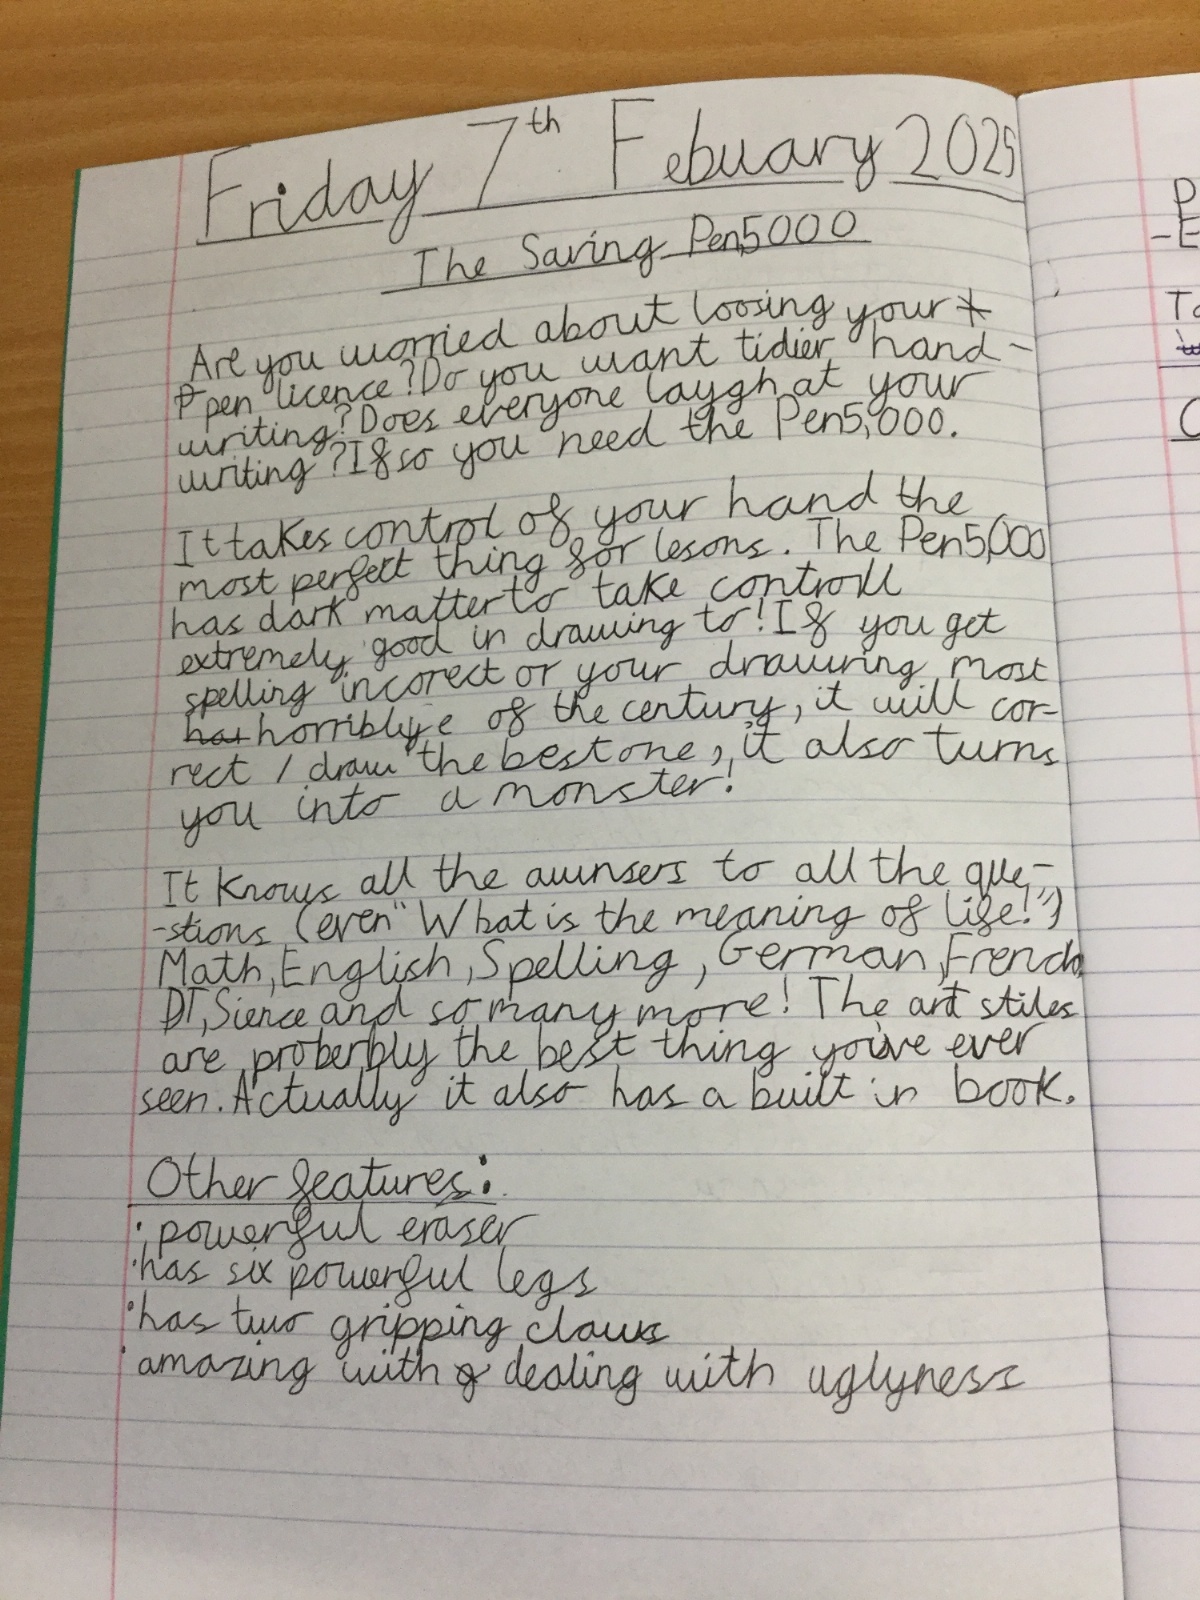 Friday 7th Febuary 2025
The Saving Pen5000
Are you worried about loosing your
pen licence? Do you want tidier hand-
writing? Does everyone laygh at your
writing? If so you need the Pen5,000.
It takes control of your hand the
most perfect thing for lesons. The Pen5,000
has dark matter to take controll
extremely good in drawing to! If you get
spelling incorect or your drawring most
horriblye of the century, it will cor-
rect / draw the best one, it also turns
you into a monster!
It knows all the awnsers to all the que-
-stions (even "What is the meaning of life!")
Math, English, Spelling, German, French,
DT, Sience and so many more! The art stiles
are proberbly the best thing you've ever
seen. Actually it also has a built in book.
Other features:
• powerful eraser
• has six powerful legs
• has two gripping claws
• amazing with dealing with uglyness
P
-E
To
C